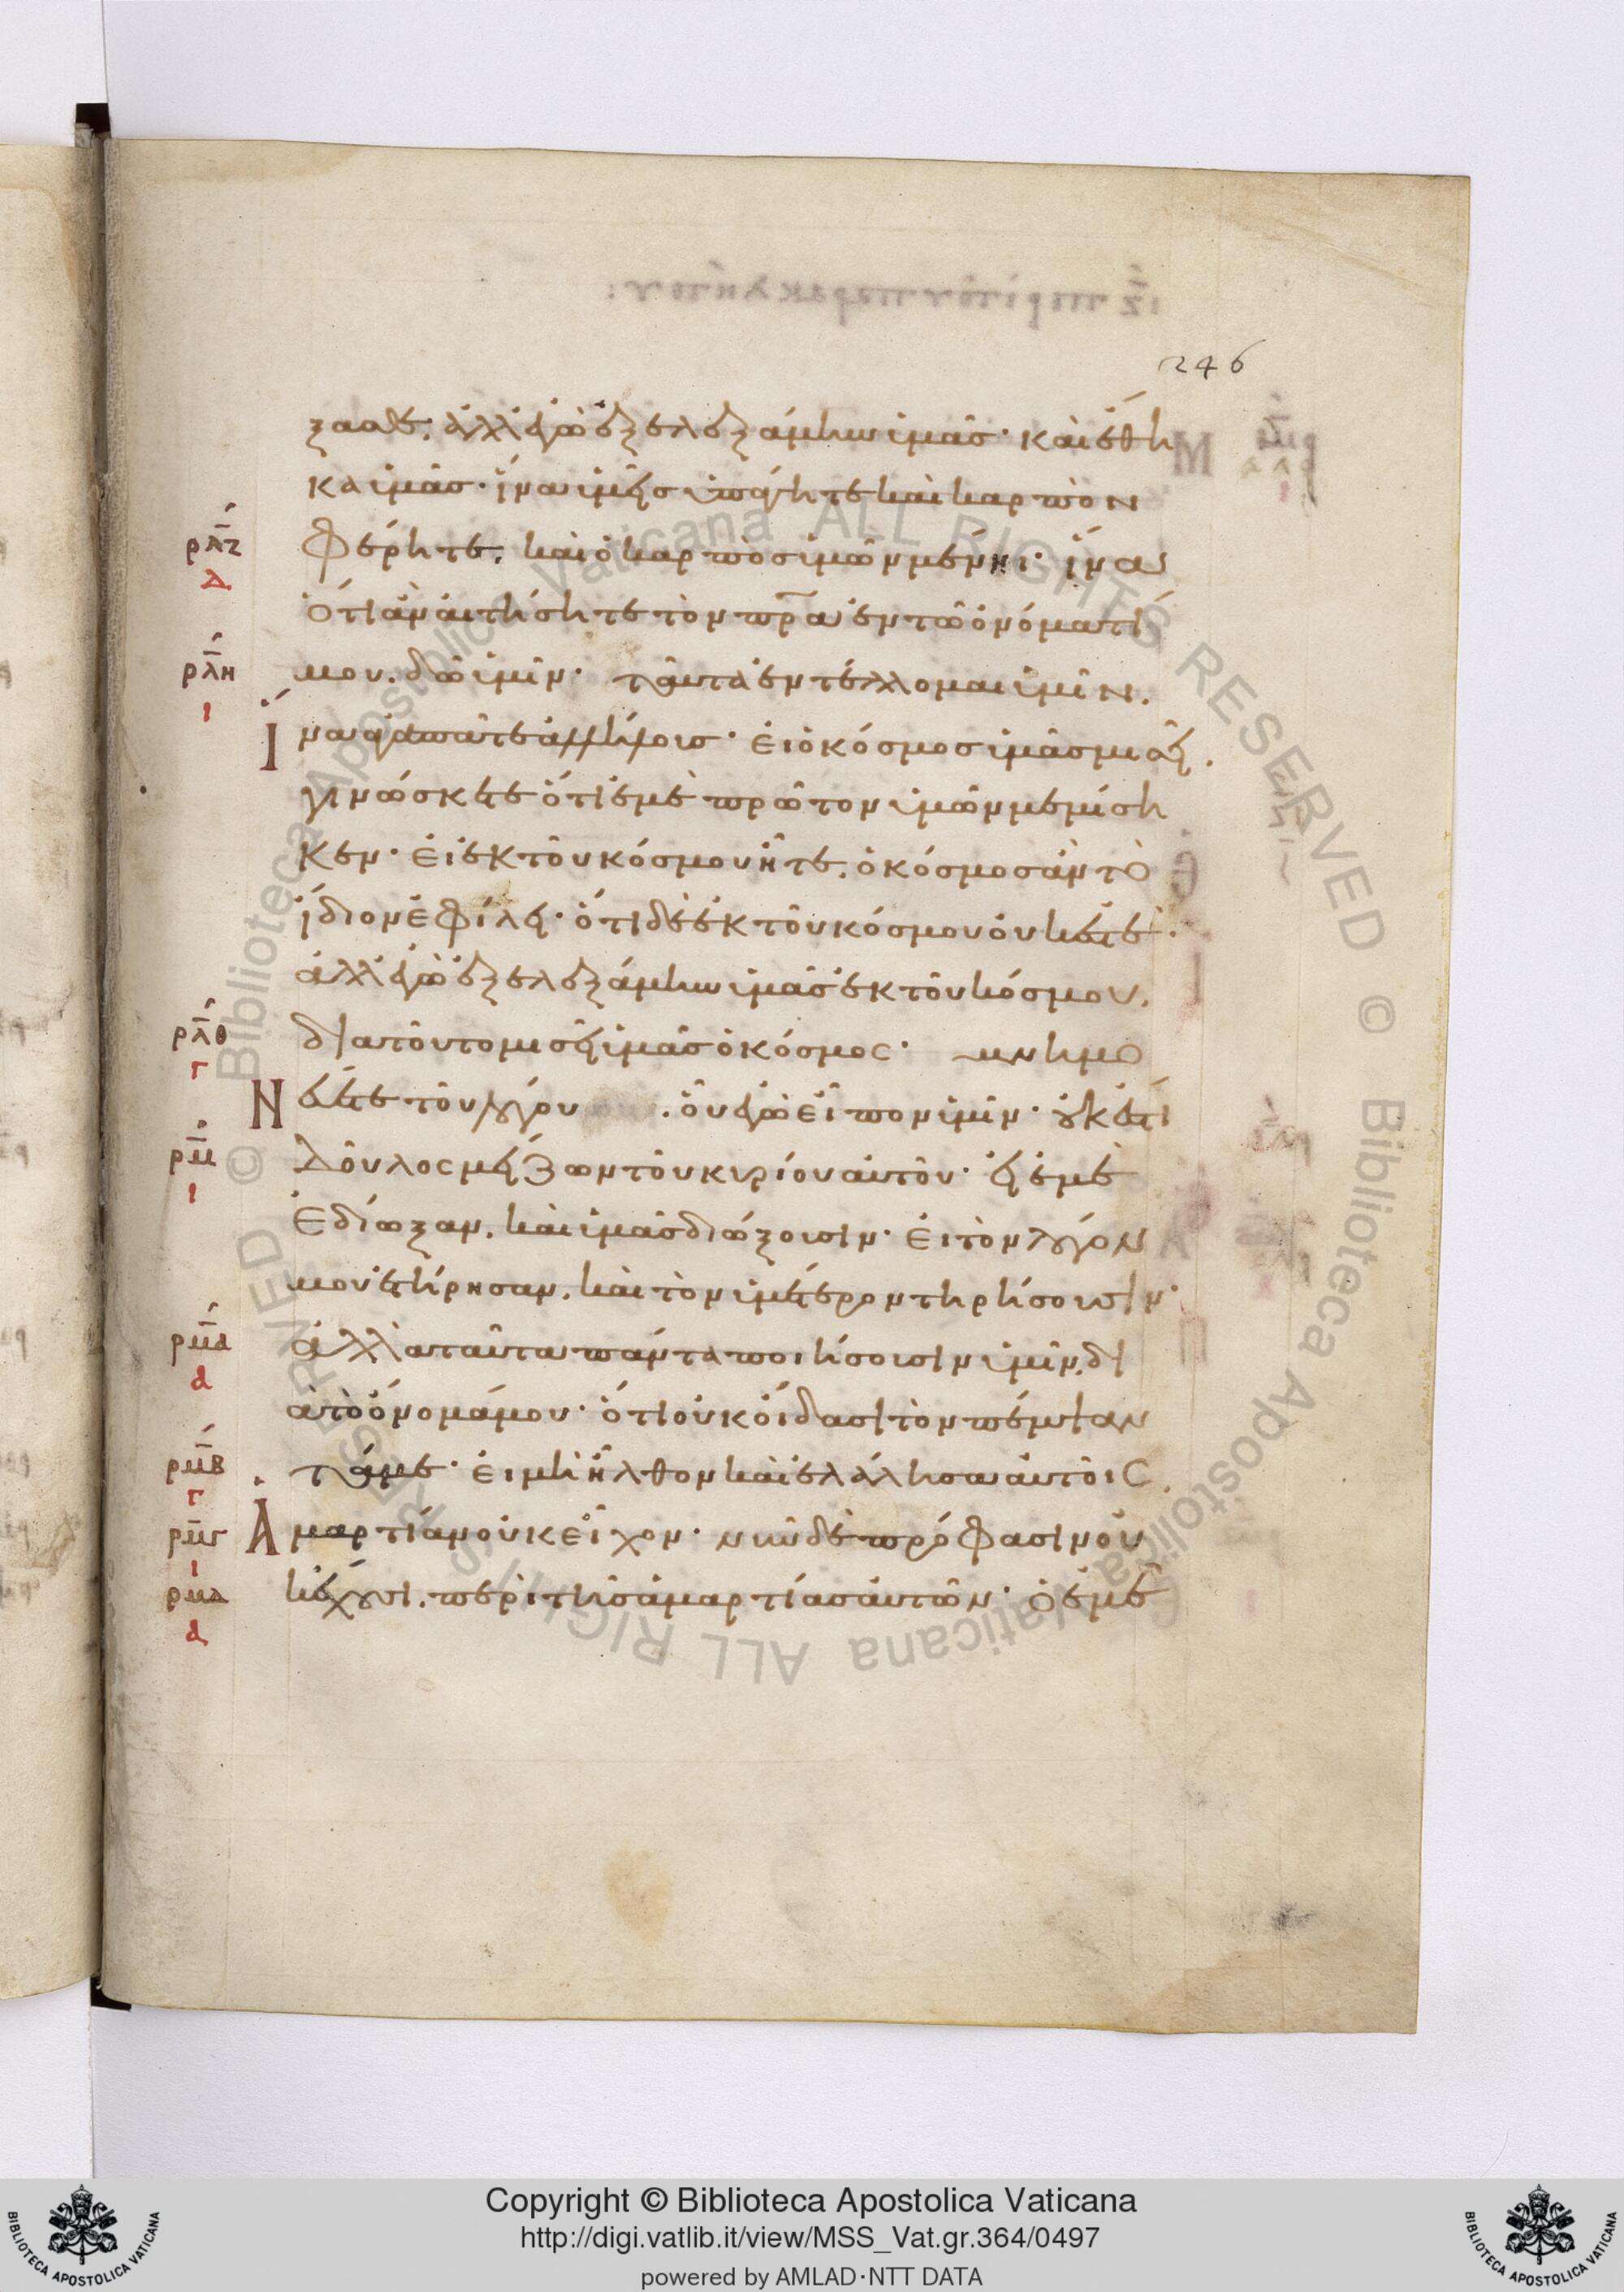 246
ξασθε· ἀλλ' ἐγὼ ἐξελεξάμην ὑμᾶς· καὶ ἔθη
κα ὑμᾶς· ἵνα ὑμεῖς ὑπάγητε καὶ καρπὸν
φέρητε. καὶ ὁ καρπὸς ὑμῶν μένηι· ἵνα
ὅτι ἂν αἰτήσητε τὸν πρ̅α ἐν τῶ ὀνόματί
μου. δῶ ὑμῖν· ταῦτα ἐντέλλομαι ὑμῖν.
ἵνα ἀγαπᾶτε ἀλλήλοις· εἰ ὁ κόσμος ὑμᾶς μισεῖ.
γινώσκετε ὅτι ἐμὲ πρῶτον ὑμῶν μεμίση
κεν· εἰ ἐκ τοῦ κόσμου ἦτε. ὁ κόσμος ἂν τὸ
ἴδιον ἐφίλει· ὅτι δὲ ἐκ τοῦ κόσμου οὐκ ἐστέ·
ἀλλ' ἐγὼ ἐξελεξάμην ὑμᾶς ἐκ τοῦ κόσμου.
διατοῦτο μισεῖ ὑμᾶς ὁ κόσμος· μνημο
Νεύετε τοῦ λόγου . οὗ ἐγὼ εἶπον ὑμῖν· οὐκ ἔστι
δοῦλος μείζων τοῦ κυρίου αὐτοῦ· εἰ ἐμὲ
ἐδίωξαν. καὶ ὑμᾶς διώξουσιν· εἰ τὸν λόγον
μου ἐτήρησαν. καὶ τὸν ὑμέτερον τηρήσουσιν·
ἀλλὰ ταῦτα πάντα ποιήσουσιν ὑμῖν. δι
ὰ τὸ ὄνομά μου· ὅτι οὐκ οἴδασι τὸν πέμψαν
τά με· εἰ μὴ ἦλθον καὶ ἐλάλησα αὐτοῖς.
Ἁμαρτίαν οὐκ εἶχον· νῦν δὲ πρόφασιν οὐ
κ ἔχουσι. περὶ τῆς ἁμαρτίας αὐτῶν· ὁ ἐμὲ
ρλζ
δ
ρλη
ι
ρλθ
γ
ρμ
ι
ρμα
α
ρμβ
γ
ρμγ
ι
ρμδ
α
© Biblioteca Apostolica Vaticana ALL RIGHTS RESERVED © Biblioteca Apostolica Vaticana ALL RIGHTS RESERVED
Copyright © Biblioteca Apostolica Vaticana
http://digi.vatlib.it/view/MSS_Vat.gr.364/0497
powered by AMLAD·NTT DATA
BIBLIOTECA APOSTOLICA VATICANA
BIBLIOTECA APOSTOLICA VATICANA